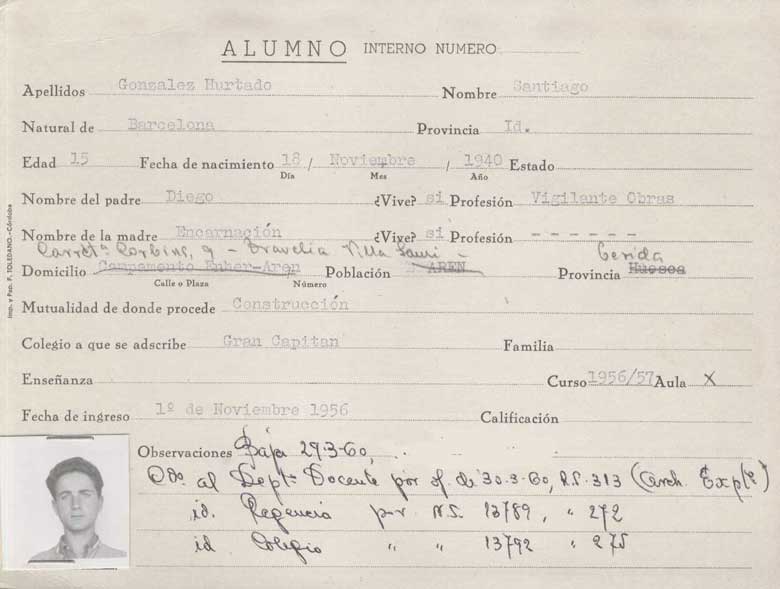 ALUMNO INTERNO NUMERO
Apellidos Gonzalez Hurtado Nombre Santiago
Natural de Barcelona Provincia Id.
Edad 15 Fecha de nacimiento 18 / Noviembre / 1940 Estado
Día Mes Año
Nombre del padre Diego ¿Vive? si Profesión Vigilante Obras
Nombre de la madre Encarnación ¿Vive? si Profesión - - - - - -
Carretª Corbins, 9 - Villa Lerida
Domicilio Campamento Enher-Aren Población AREN Provincia Huesca
Calle o Plaza Número
Mutualidad de donde procede Construcción
Colegio a que se adscribe Gran Capitan Familia
Enseñanza Curso 1956/57 Aula X
Fecha de ingreso 1º de Noviembre 1956 Calificación
Observaciones Baja 29-3-60,
al Deptº Docente por of. de 30-3-60, R.S. 313 (Arch. Expte)
id. Regencia por N.S. 13789, " 272
id Colegio " " 13792 " 275
Imp. y Pap. F. TOLEDANO.-Córdoba